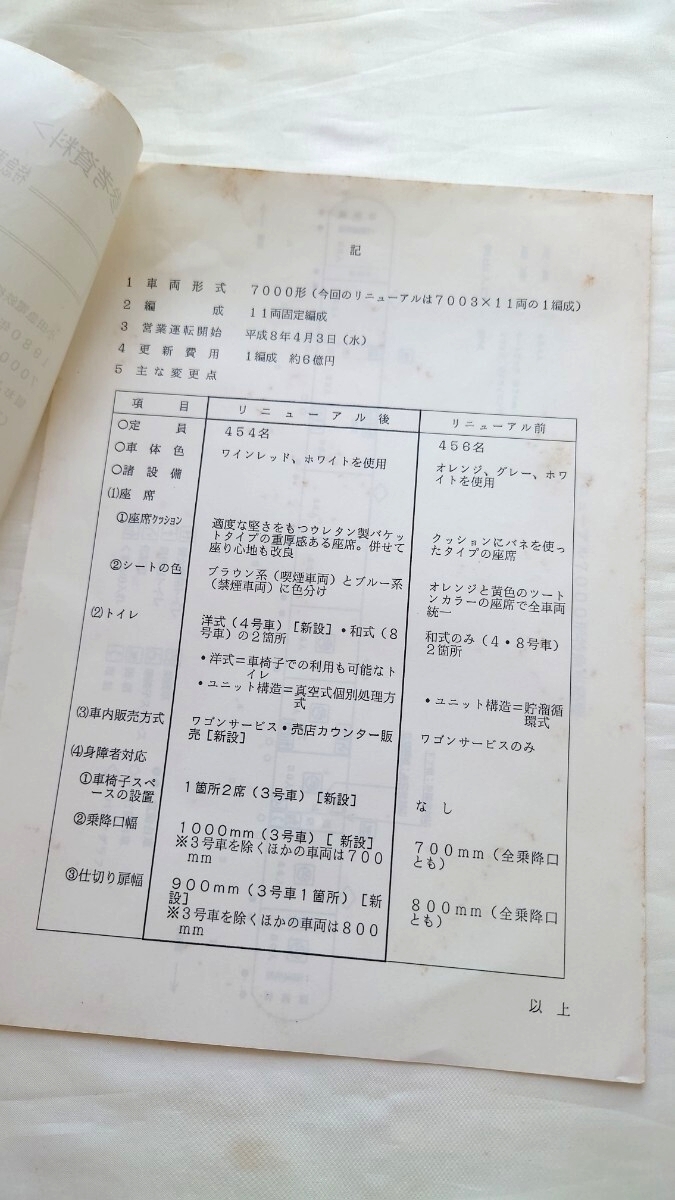 記
1 車両形式 7000形（今回のリニューアルは7003×11両の1編成）
2 編成 11両固定編成
3 営業運転開始 平成8年4月3日（水）
4 更新費用 1編成 約6億円
5 主な変更点
項目 リニューアル後 リニューアル前
○定員 454名 456名
○車体色 ワインレッド、ホワイトを使用 オレンジ、グレー、ホワ
イトを使用
○諸設備
⑴座席
①座席ｸｯｼｮﾝ 適度な堅さをもつウレタン製バケッ
トタイプの重厚感ある座席。併せて
座り心地も改良
クッションにバネを使っ
たタイプの座席
②シートの色 ブラウン系（喫煙車両）とブルー系
（禁煙車両）に色分け
オレンジと黄色のツート
ンカラーの座席で全車両
統一
⑵トイレ 洋式（4号車）［新設］・和式（8
号車）の2箇所
和式のみ（4・8号車）
2箇所
・洋式＝車椅子での利用も可能なト
イレ
・ユニット構造＝真空式個別処理方
式
・ユニット構造＝貯溜循
環式
⑶車内販売方式 ワゴンサービス・売店カウンター販
売［新設］
ワゴンサービスのみ
⑷身障者対応
①車椅子スペ
ースの設置
1箇所2席（3号車）［新設］ なし
②乗降口幅 1000mm（3号車）［新設］
※3号車を除くほかの車両は700
mm
700mm（全乗降口
とも）
③仕切り扉幅 900mm（3号車1箇所）［新
設］
※3号車を除くほかの車両は800
mm
800mm（全乗降口
とも）
以上